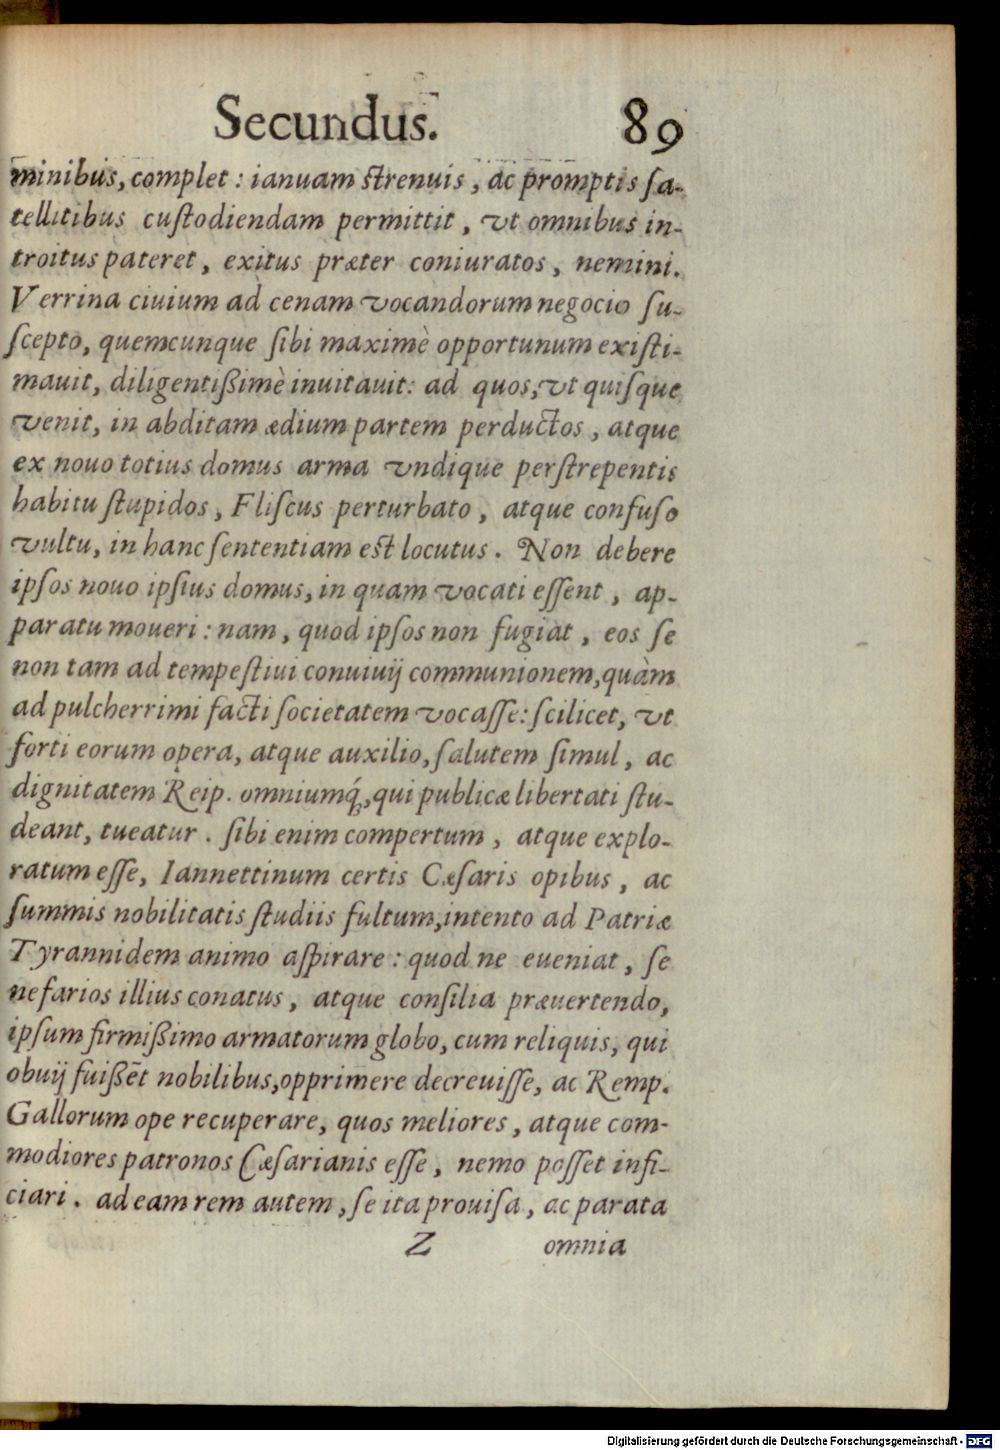 Secundus. 89
minibus, complet: ianuam strenuis, ac promptis sa-
tellitibus custodiendam permittit, vt omnibus in-
troitus pateret, exitus præter coniuratos, nemini.
Verrina ciuium ad cenam vocandorum negocio su-
scepto, quemcunque sibi maximè opportunum existi-
mauit, diligentißimè inuitauit: ad quos, vt quisque
venit, in abditam ædium partem perductos, atque
ex nouo totius domus arma vndique perstrepentis
habitu stupidos, Fliscus perturbato, atque confuso
vultu, in hanc sententiam est locutus. Non debere
ipsos nouo ipsius domus, in quam vocati essent, ap-
paratu moueri: nam, quod ipsos non fugiat, eos se
non tam ad tempestiui conuiuij communionem, quàm
ad pulcherrimi facti societatem vocasse: scilicet, vt
forti eorum opera, atque auxilio, salutem simul, ac
dignitatem Reip. omniumq́, qui publicæ libertati stu-
deant, tueatur. sibi enim compertum, atque explo-
ratum esse, Iannettinum certis Cæsaris opibus, ac
summis nobilitatis studiis fultum, intento ad Patriæ
Tyrannidem animo aspirare: quod ne eueniat, se
nefarios illius conatus, atque consilia præuertendo,
ipsum firmißimo armatorum globo, cum reliquis, qui
obuij fuißēt nobilibus, opprimere decreuisse, ac Remp.
Gallorum ope recuperare, quos meliores, atque com-
modiores patronos Cæsarianis esse, nemo posset infi-
ciari. ad eam rem autem, se ita prouisa, ac parata
Z omnia
Digitalisierung gefördert durch die Deutsche Forschungsgemeinschaft - DFG